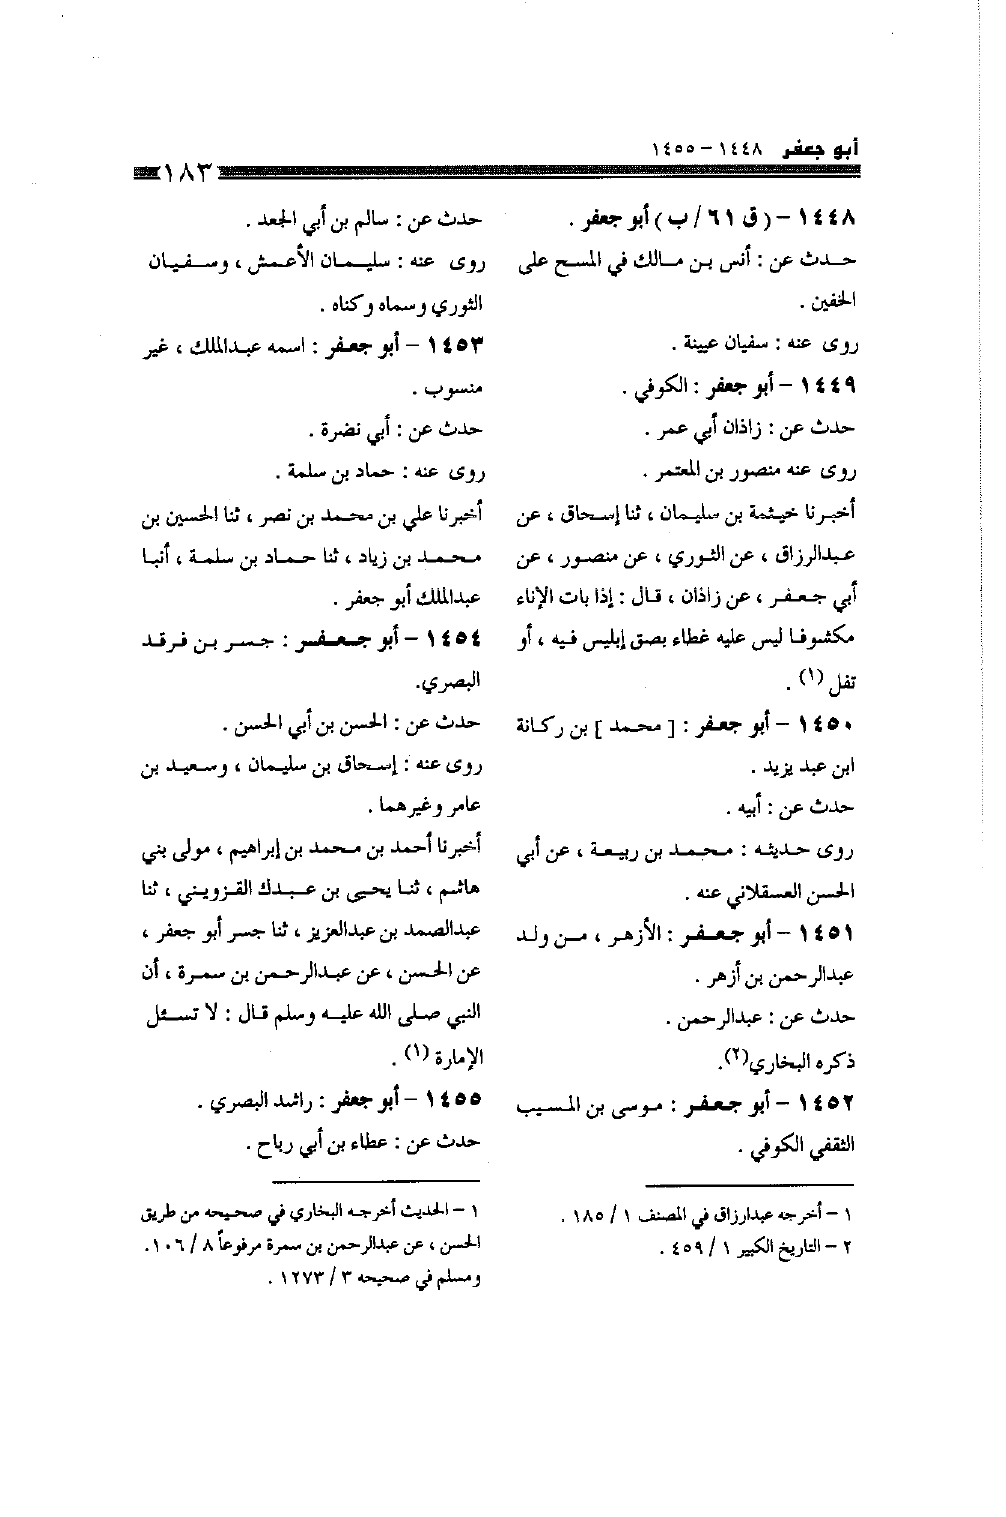 أبو جعفر ١٤٤٨ - ١٤٥٥
١٨٣
١٤٤٨ - ( ق ٦١ / ب ) أبو جعفر .
حدث عن : أنس بن مالك في المسح على
الخفين .
روى عنه : سفيان عيينة .
١٤٤٩ - أبو جعفر : الكوفي .
حدث عن : زاذان أبي عمر .
روى عنه منصور بن المعتمر .
أخبرنا خيثمة بن سليمان ، ثنا إسحاق ، عن
عبدالرزاق ، عن الثوري ، عن منصور ، عن
أبي جعفر ، عن زاذان ، قال : إذا بات الإناء
مكشوفا ليس عليه غطاء بصق إبليس فيه ، أو
تفل (١) .
١٤٥٠ - أبو جعفر : [ محمد ] بن ركانة
ابن عبد يزيد .
حدث عن : أبيه .
روى حديثه : محمد بن ربيعة ، عن أبي
الحسن العسقلاني عنه .
١٤٥١ - أبو جعفر : الأزهر ، من ولد
عبدالرحمن بن أزهر .
حدث عن : عبدالرحمن .
ذكره البخاري(٢).
١٤٥٢ - أبو جعفر : موسى بن المسيب
الثقفي الكوفي .
١ - أخرجه عبدارزاق في المصنف ١ / ١٨٥ .
٢ - التاريخ الكبير ١ / ٤٥٩ .
حدث عن : سالم بن أبي الجعد .
روى عنه : سليمان الأعمش ، وسفيان
الثوري وسماه وكناه .
١٤٥٣ - أبو جعفر : اسمه عبدالملك ، غير
منسوب .
حدث عن : أبي نضرة .
روى عنه : حماد بن سلمة .
أخبرنا علي بن محمد بن نصر ، ثنا الحسين بن
محمد بن زياد ، ثنا حماد بن سلمة ، أنبا
عبدالملك أبو جعفر .
١٤٥٤ - أبو جعفر : جسر بن فرقد
البصري.
حدث عن : الحسن بن أبي الحسن .
روى عنه : إسحاق بن سليمان ، وسعيد بن
عامر وغيرهما .
أخبرنا أحمد بن محمد بن إبراهيم ، مولى بني
هاشم ، ثنا يحيى بن عبدك القزويني ، ثنا
عبدالصمد بن عبدالعزيز ، ثنا جسر أبو جعفر ،
عن الحسن ، عن عبدالرحمن بن سمرة ، أن
النبي صلى الله عليه وسلم قال : لا تسئل
الإمارة (١) .
١٤٥٥ - أبو جعفر : راشد البصري .
حدث عن : عطاء بن أبي رباح .
١ - الحديث أخرجه البخاري في صحيحه من طريق
الحسن ، عن عبدالرحمن بن سمرة مرفوعاً ٨ / ١٠٦.
ومسلم في صحيحه ٣ / ١٢٧٣ .